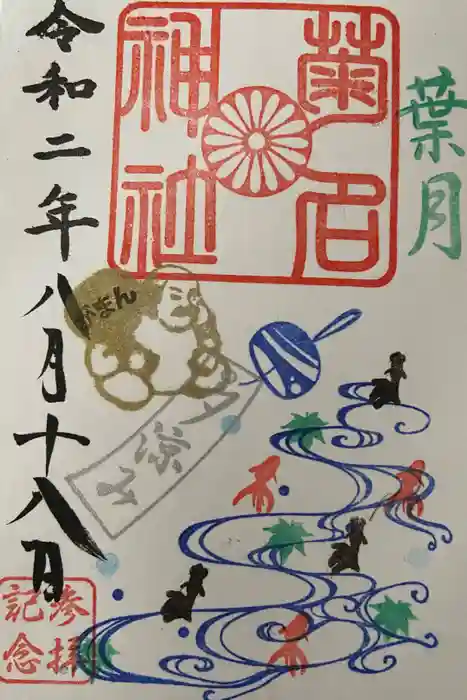 菊名
神社
葉月
令和二年八月十八日
がまん
参拝
記念